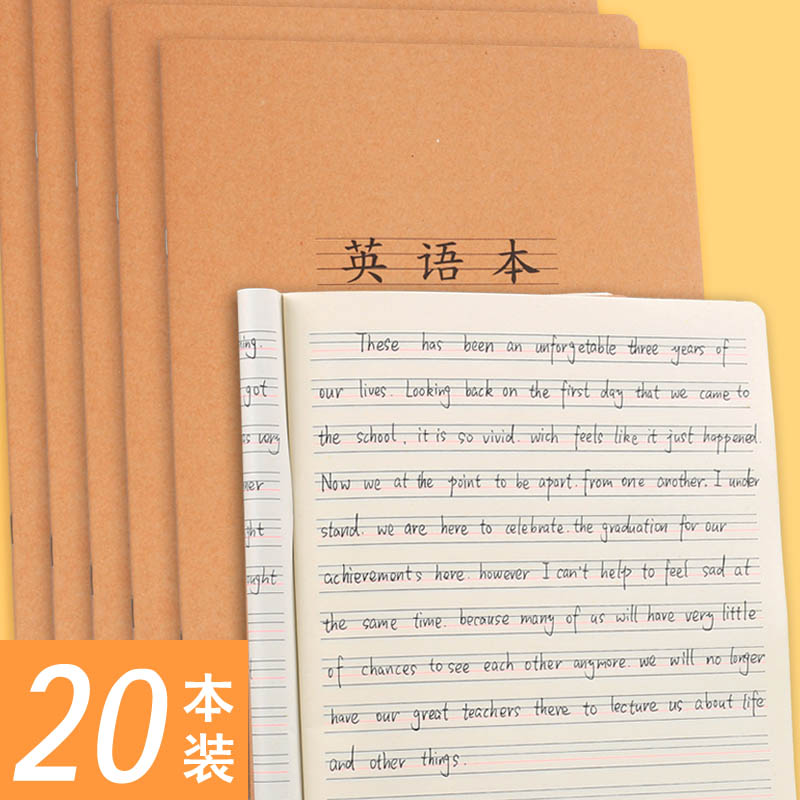 英语本
ning.
got
as very
ner
ght
ought
These has been an unforgetable three years of
our lives. Looking back on the first day that we came to
the school, it is so vivid. wich feels like it just happened.
Now we at the point to be apart. from one another. I under
stand. we are here to celebrate. the graduation for our
achievements here. however I can't help to feel sad at
the same time. because many of us will have very little
of chances to see each other anymore. we will no longer
have our great teachers there to lecture us about life
and other things.
20本装